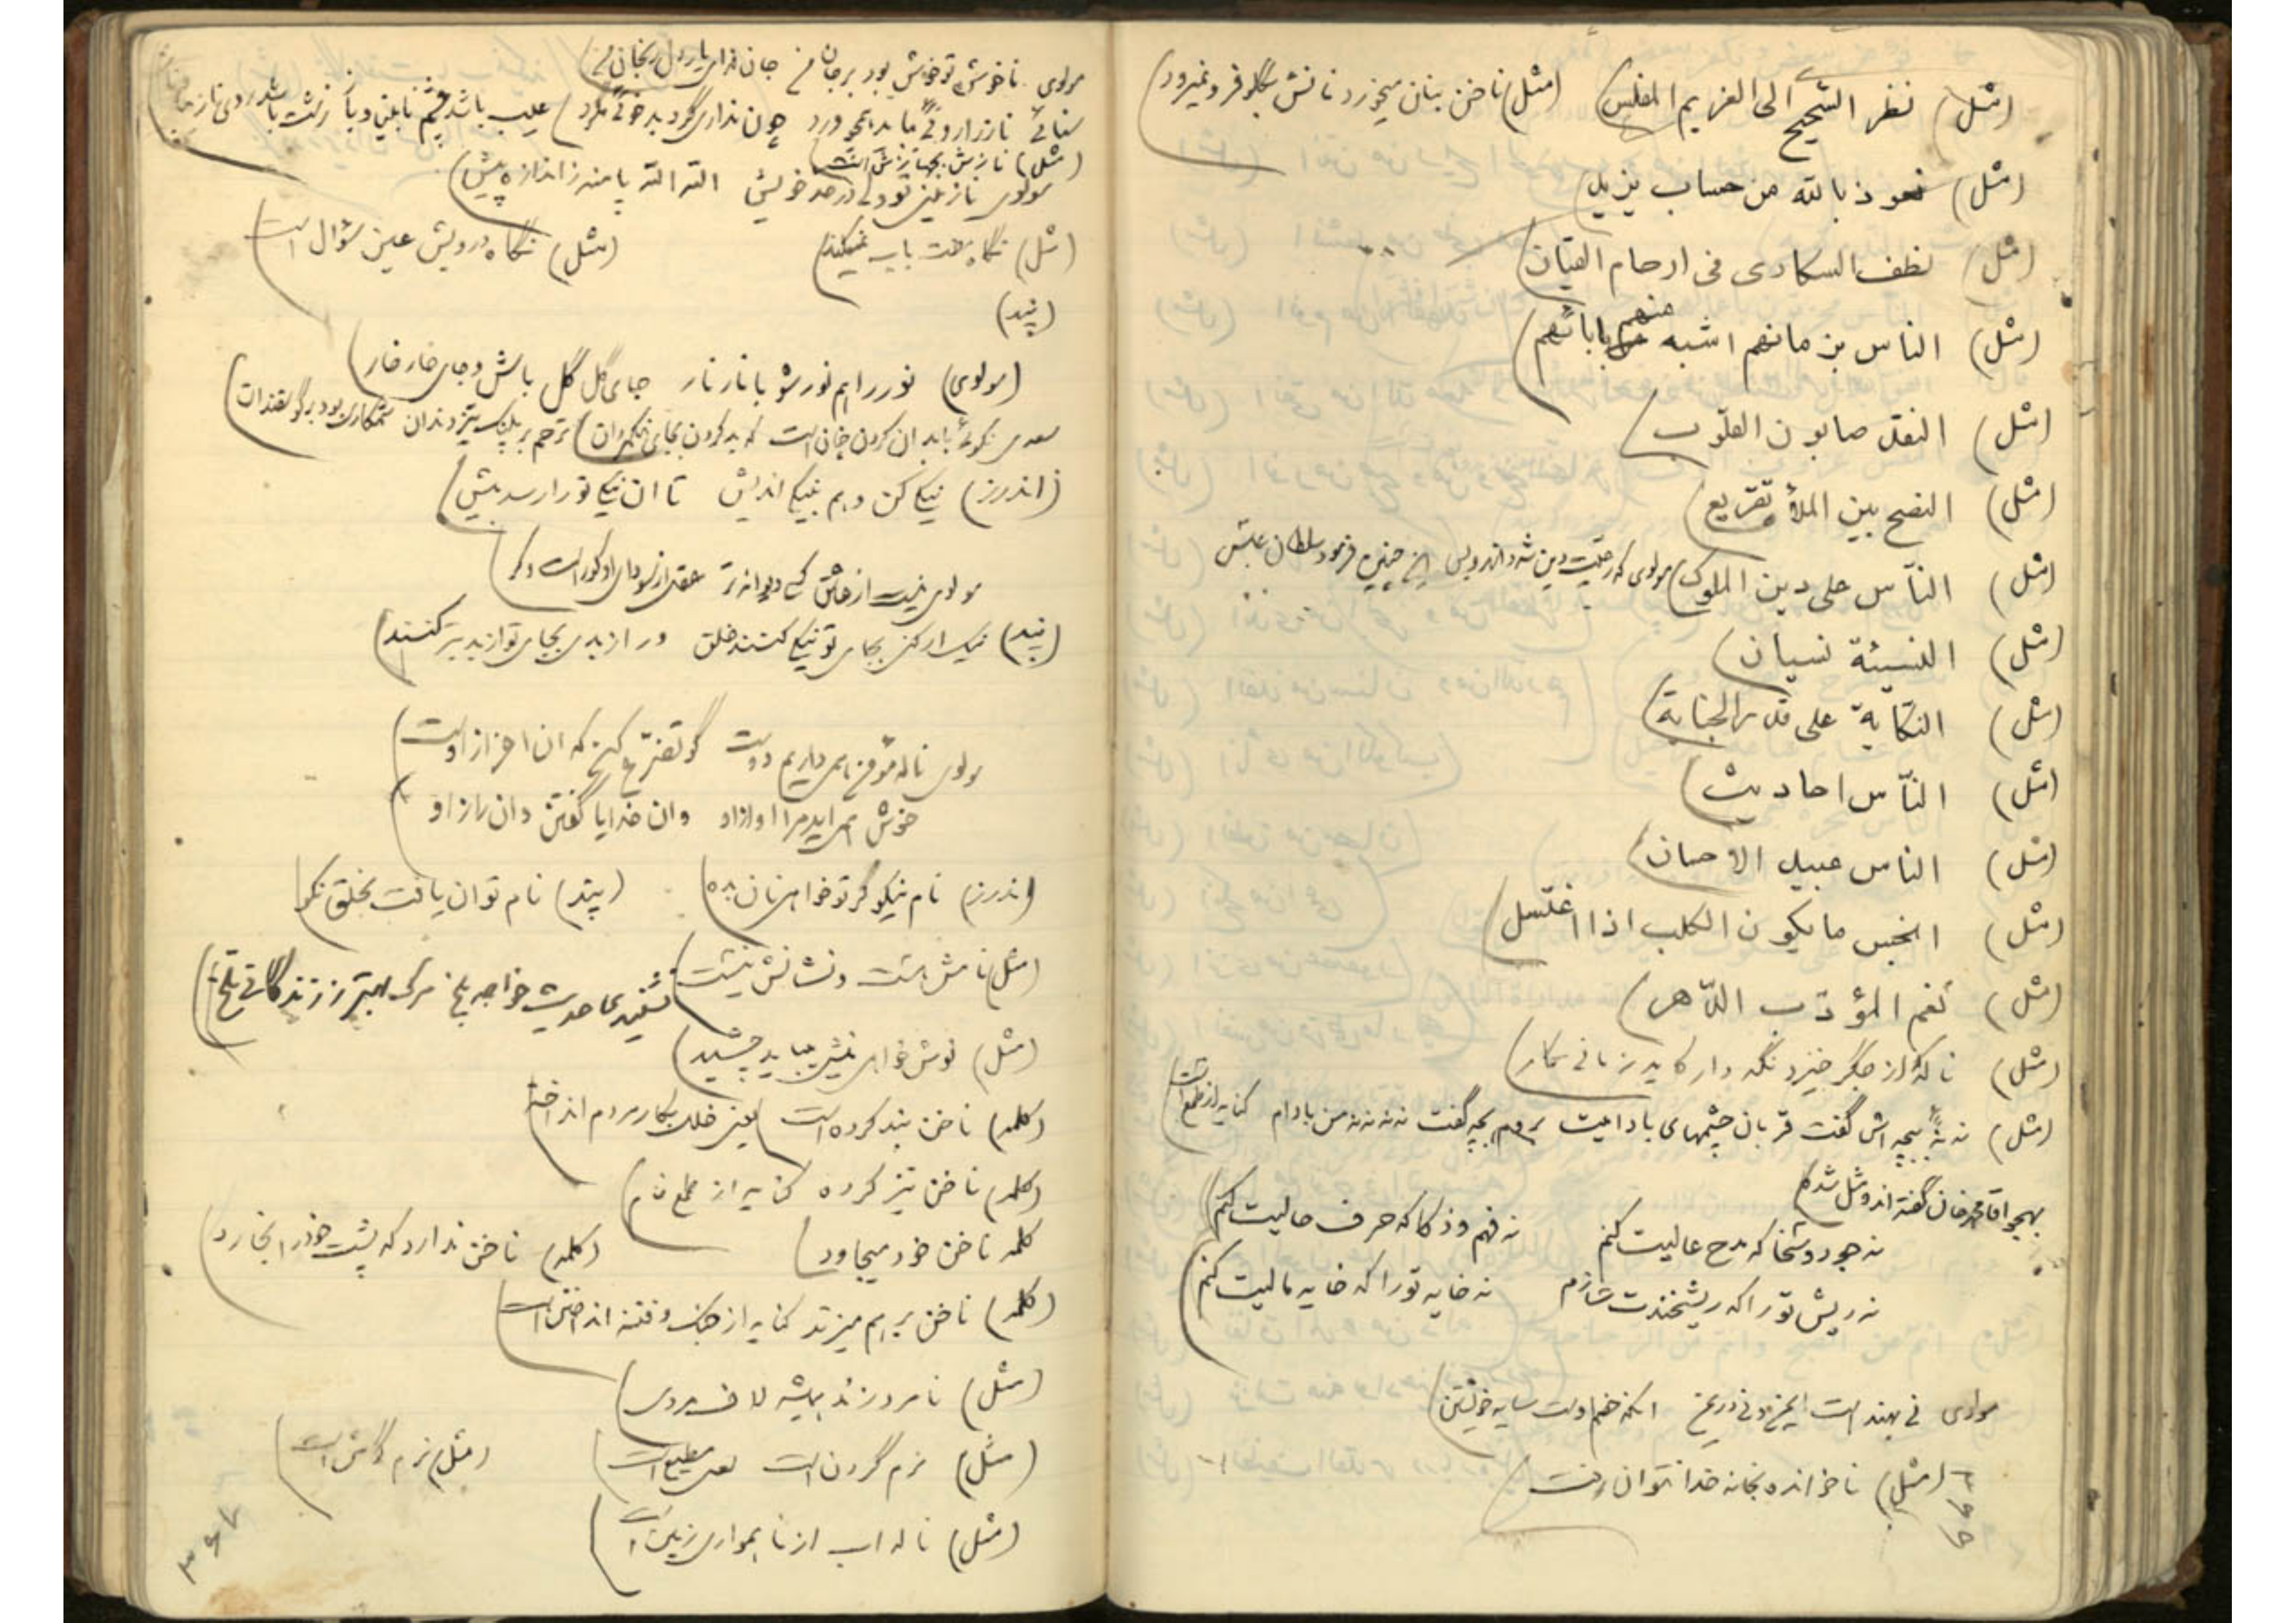 (مثل) نظر الشحیح الی الغریم المفلس) (مثل) ناخن بنان میخورد نانش بگلو فرو نمیرود)
(مثل) نعوذ بالله من حساب یزید)
(مثل) نطف السکاری فی ارحام القیان)
(مثل) الناس بزمانهم اشبه منهم بابائهم)
(مثل) النقد صابون القلوب)
(مثل) النصح بین الملأ تقریع)
(مثل) النّاس علی دین الملوک) مولوی که رعیت دین شه دارند وبس این چنین فرمود سلطان عبس
(مثل) النسیئة نسیان)
(مثل) النکایة علی قدر الجنایة)
(مثل) النّاس احادیث)
(مثل) الناس عبید الاحسان)
(مثل) انجس ما یکون الکلب اذا اغتسل)
(مثل) نعم المؤدّب الدّهر)
(مثل) ناله کز جگر خیزد نگه دار کاید زمانی بکار)
(مثل) ننه ببچه اش گفت قربان چشمهای بادامیت بروم بچه گفت ننه ننه من بادام کنایه از طمع است
بهجو اقا محمد خان گفته اند و مثل شد
نه جود و سخا که مدح عالیت کنم نه فهم و ذکا که حرف حالیت کنم
نه ریش تو را که ریشخندت سازم نه خایه تو را که خایه مالیت کنم)
مولوی نی بهند است ایمن و نی در آنکه خصم اوست سایه خویشتن)
(مثل) ناخوانده بخانه خدا نتوان رفت)
مولوی ناخوش تو خوش بود بر جان من جان فدای یار دل رنجان من)
سنائی ناز را روئی بباید همچو ورد چون نداری گرد بدخوئی مگرد) عیب باشد چشم نابینا و باز زشت باشد روی نازیبا و ناز
(مثل) نازش بجا نازش است)
مولوی نازنینی تو ولی در حد خویش الله الله پا منه ز اندازه بیش)
(مثل) نگاه باب نمیکند) (مثل) نگاه درویش عین سؤال است)
(پند)
(مولوی) نور را هم نور شو با نار نار جای گل گل باش و جای خار خار)
سعدی نکوئی با بدان کردن چنان است که بد کردن بجای نیکمردان) ترحم بر پلنگ تیز دندان ستمکاری بود بر گوسفندان
(اندرز) نیکی کن و هم بنیکی اندیش تا ان نیکی تو را رسد پیش)
مولوی نیست از عاشق کسی دیوانه تر عقل از سودای او کور است و کر)
(پند) نیک ار کنی بجای تو نیکی کنند خلق ور از بدی بجای تو از بد بتر کنند)
مولوی ناله مؤمن همی داریم دوست گو تضرع کن که ان اعزاز اوست
خوش همی اید مرا اواز او وان خدایا گفتن و ان راز او)
(اندرز) نام نیکو گر تو خواهی نان بده) (پند) نام توان یافت بخلق نکو)
(مثل) نامش هست و نشانش نیست) نشنیدی حدیث خواجه بلخ مرگ بهتر ز زندگانی تلخ)
(مثل) نوش خواهی نیش میباید چشید)
(کلمه) ناخن بند کرده است یعنی خلل بکار مردم انداخته)
(کلمه) ناخن تیز کرده کنایه از طمع خام)
کلمه ناخن خود میجاود) (کلمه) ناخن ندارد که پشت خود را بخارد)
(کلمه) ناخن بر هم میزند کنایه از جنگ و فتنه انداختن است)
(مثل) نامرد زند همیشه لاف مردی)
(مثل) نرم گردن است یعنی مطیع است) (مثل) نرم گوش است)
(مثل) ناله اب از ناهمواری زمین است)